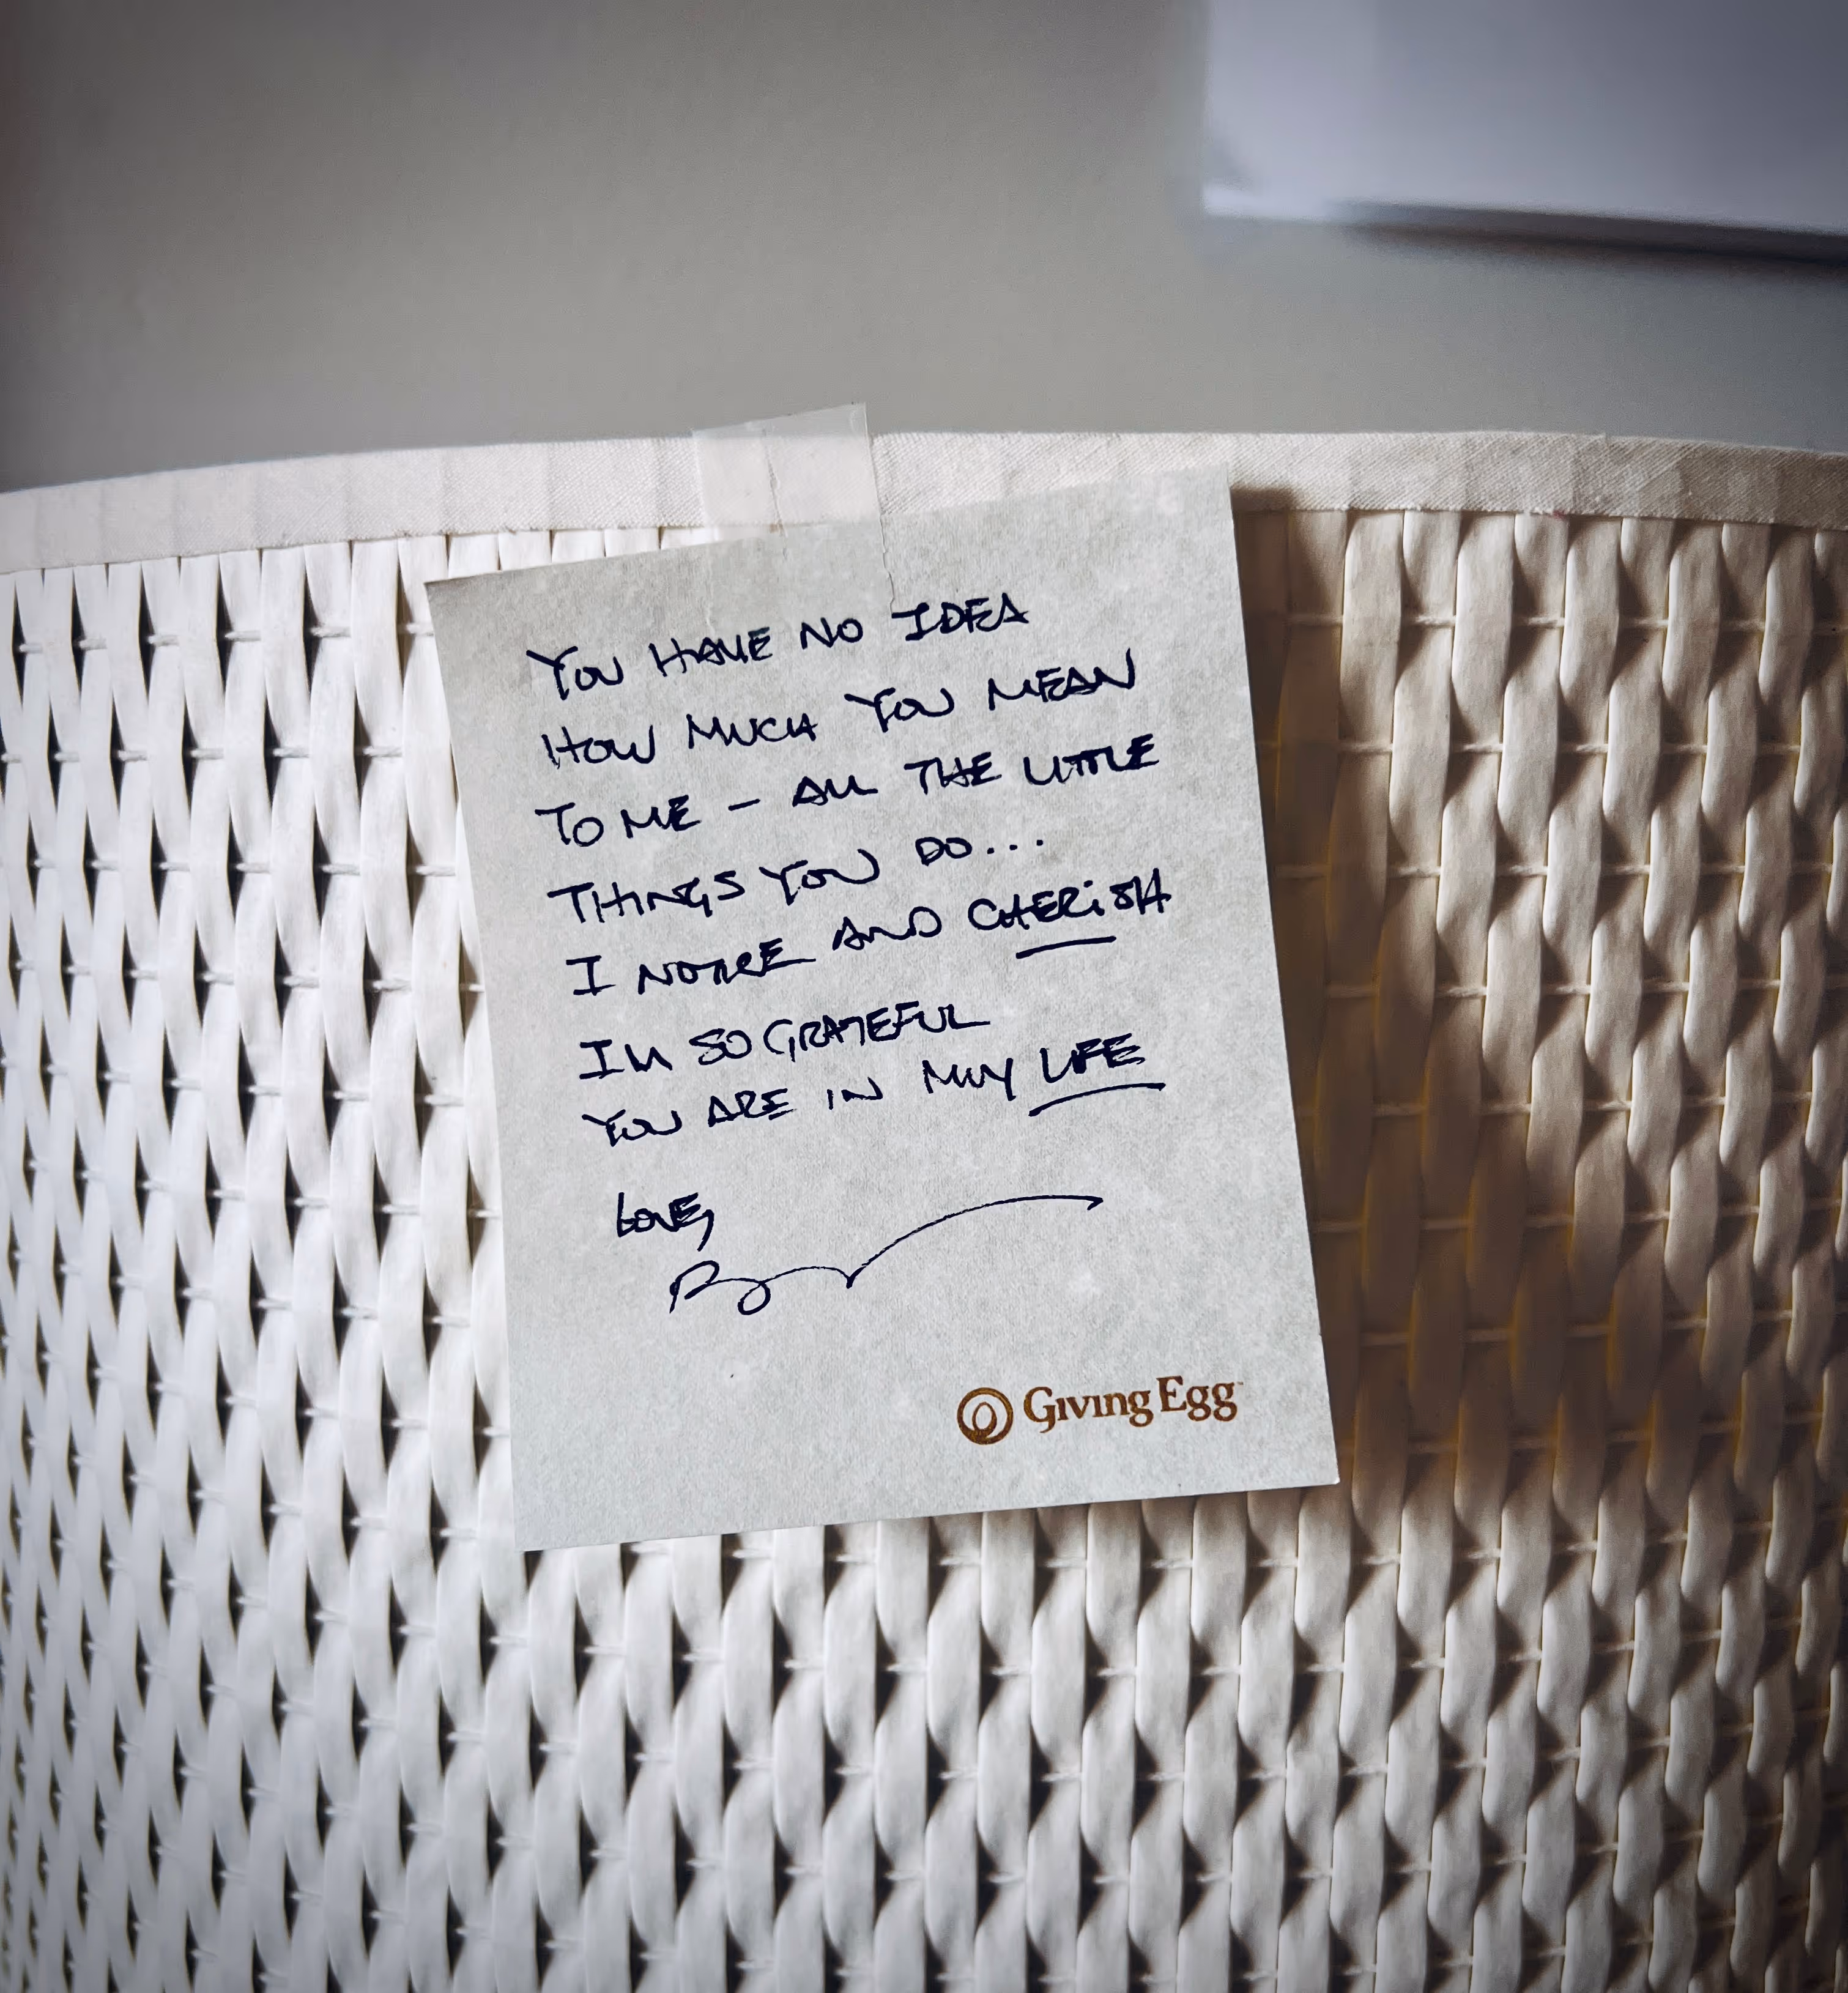 YOU HAVE NO IDEA
HOW MUCH YOU MEAN
TO ME – ALL THE LITTLE
THINGS YOU DO...
I NOTICE AND CHERiSH
I'M SO GRATEFUL
YOU ARE IN MY LIFE
LOVE,
Giving Egg